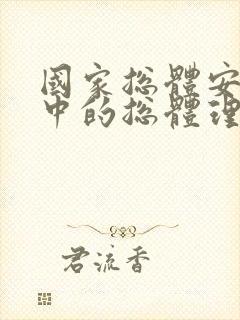 國家總體安
中的總體理
君流香